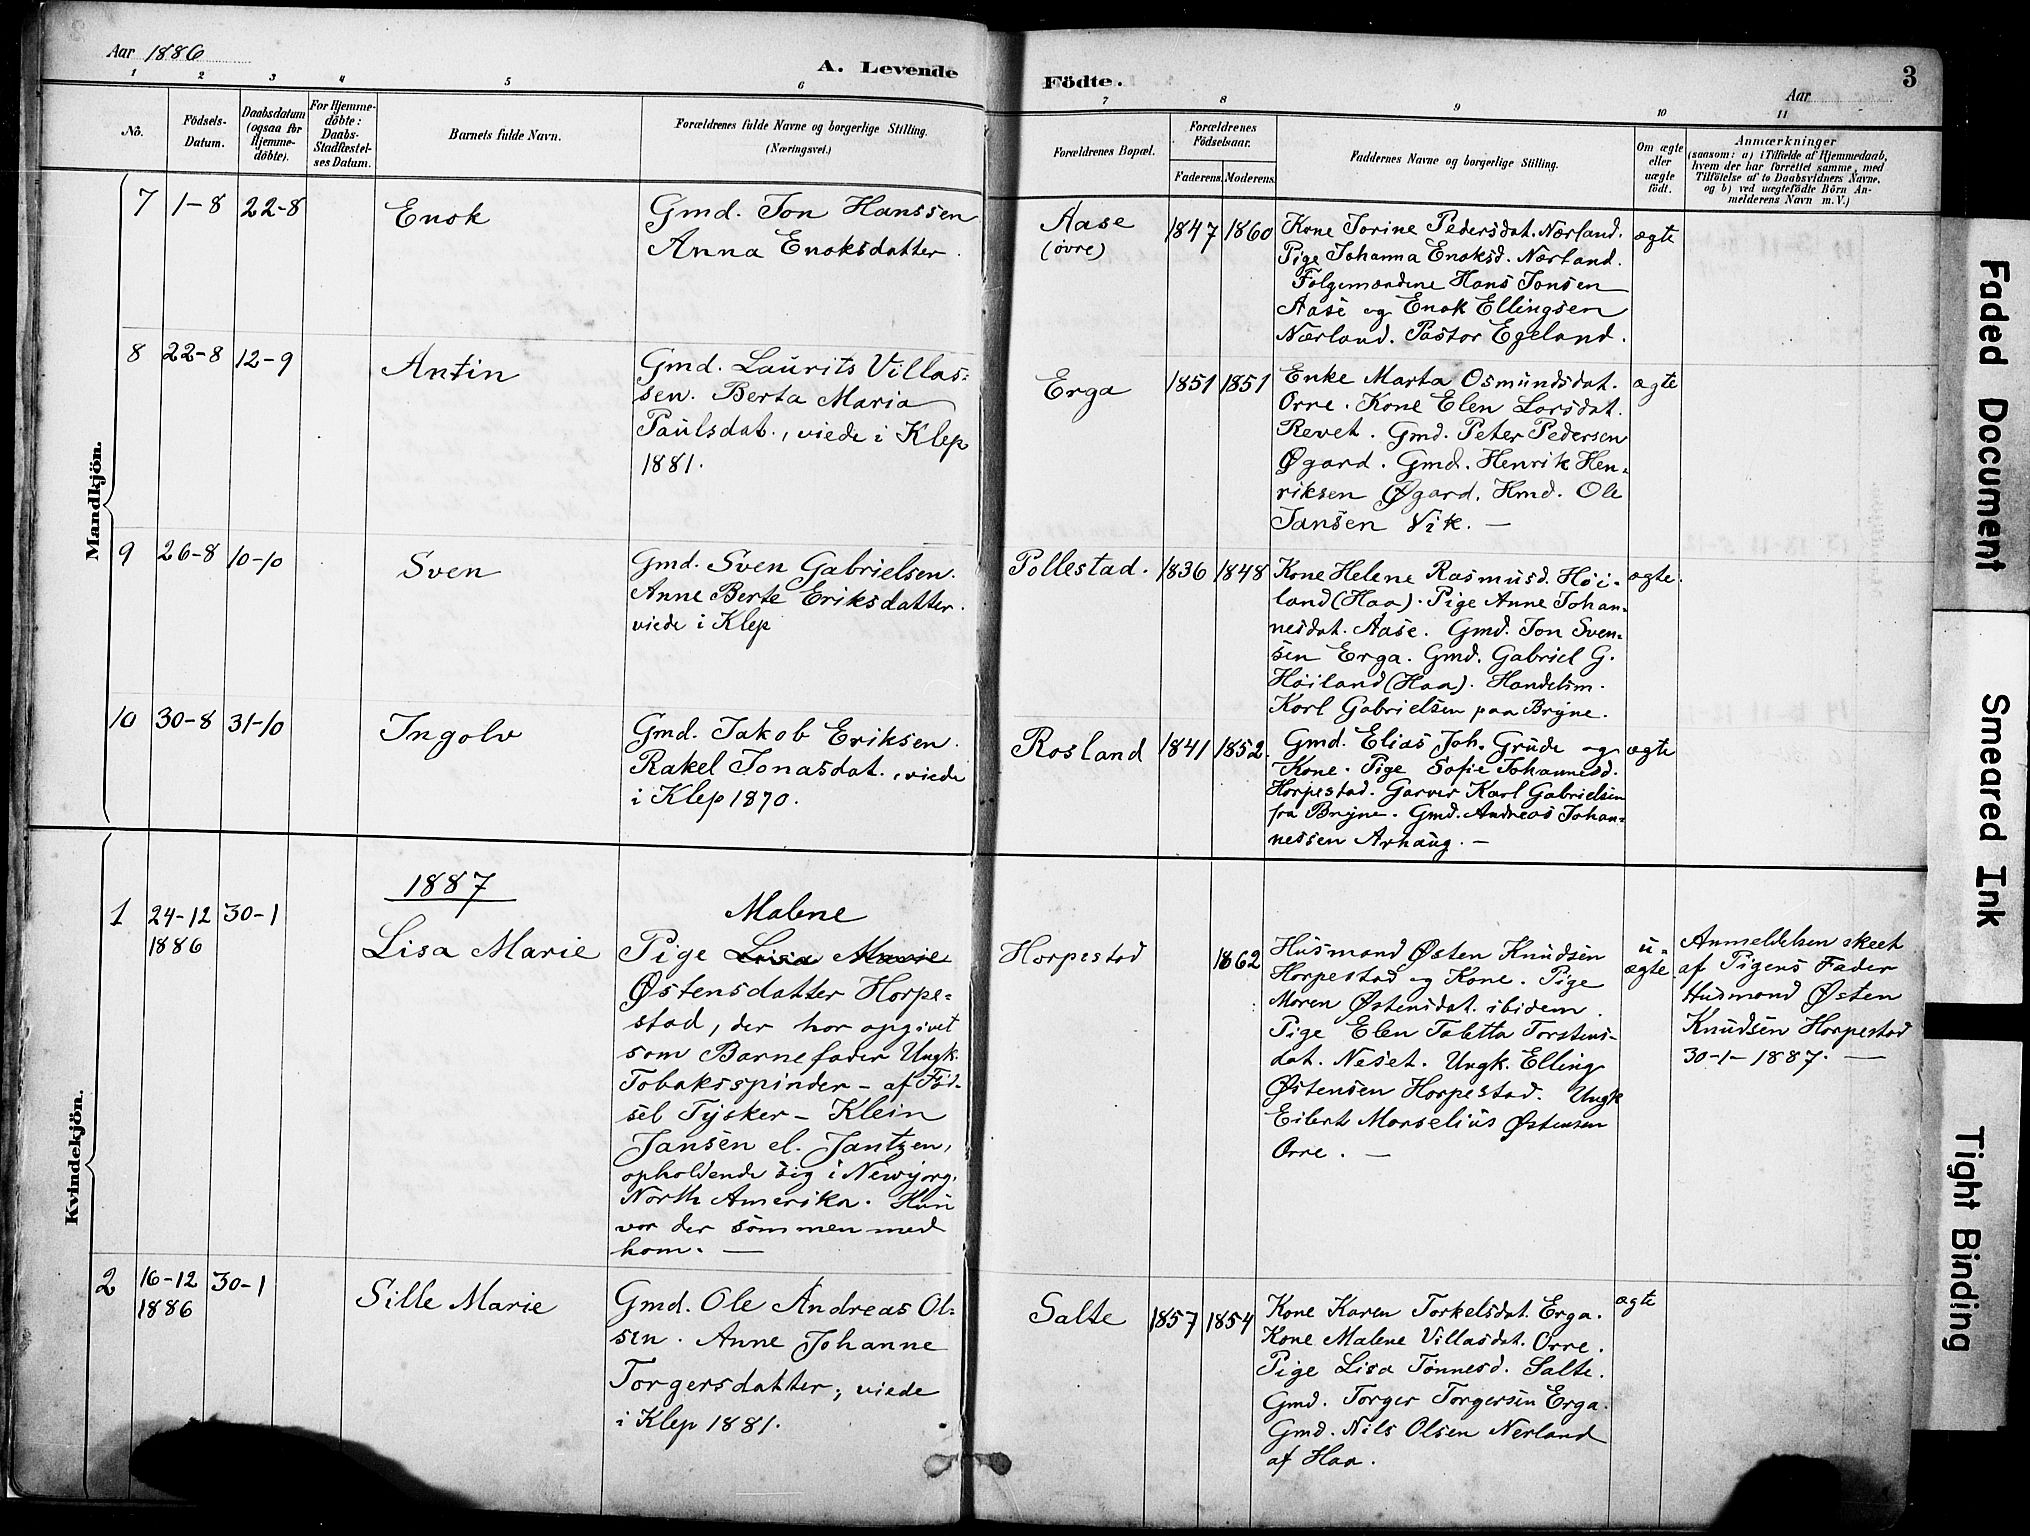 Aar 1886
A. Levende
1 2 3 4 5 6
No.
Födsels-
Datum.
Daabsdatum
(ogsaa for
Hjemme-
döbte).
For Hjemme-
döbte:
Daabs-
Stadfæstel-
ses Datum.
Barnets fulde Navn.
Forældrenes fulde Navne og borgerlige Stilling.
(Næringsvei.)
Mandkjön.
7 1-8 22-8 Enok
Gmd. Jon Hanssen
Anna Enoksdatter.
8 22-8 12-9 Antin
Gmd. Laurits Villas-
sen. Berta Maria
Paulsdat., viede i Klep
1881.
9 26-8 10-10 Sven
Gmd. Sven Gabrielsen.
Anne Berte Eriksdatter.
viede i Klep
10 30-8 31-10 Ingolv
Gmd. Jakob Eriksen.
Rakel Jonasdat., viede
i Klep 1870.
Kvindekjön.
1887
1 24-12 30-1
1886
Lisa Marie
Malene
Pige Lisa Marie
Østensdatter Horpe-
stad, der har opgivet
som Barnefader Ungk.
Tobaksspinder - af Föd-
sel Tysker - Klein
Jansen el. Jantzen,
opholdende sig i Newyorg.
North Amerika. Hun
var der sammen med
ham. —
2 16-12 30-1
1886
Sille Marie
Gmd. Ole Andreas Ol-
sen. Anne Johanne
Torgersdatter, viede
i Klep 1881.
Födte.
3
Aar
7 8 9 10 11
Forældrenes Bopæl.
Forældrenes
Födselsaar.
Faderens. Moderens.
Faddernes Navne og borgerlige Stilling.
Om ægte
eller
uægte
födt.
Anmærkninger
(saasom: a) i Tilfælde af Hjemmedaab,
hvem der har forrettet samme, med
Tilföielse af to Daabsvidners Navne.
og b) ved uægtefödte Börn An-
melderens Navn m. V.)
Aase
(övre)
1847 1860
Kone Jorine Pedersdat. Nærland.
Pige Johanna Enoksd. Nærland.
Folgemændene Hans Jonsen
Aase og Enok Ellingsen
Nærland. Pastor Egeland.
ægte
Erga 1851 1851
Enke Marta Osmundsdat.
Orre. Kone Elen Larsdat.
Revet. Gmd. Peter Pedersen
Øgard. Gmd. Henrik Hen-
riksen Øgard. Hmd. Ole
Jansen Vik. —
ægte
Pollestad. 1836 1848
Kone Helene Rasmusd. Höi-
land (Haa). Pige Anne Johan-
nesdat. Aase. Gmd. Jon Sven-
sen Erga. Gmd. Gabriel G.
Höiland (Haa). Handelsm.
Karl Gabrielsen paa Bryne.
ægte.
Rosland 1841 1852.
Gmd. Elias Joh. Grude og
Kone. Pige Sofie Johannesd.
Horpestad. Garver Karl Gabrielsen
fra Bryne. Gmd. Andreas Johan-
nessen Arhaug. —
ægte
Horpestad 1862
Husmand Østen Knudsen
Horpestad og Kone. Pige
Maren Østensdat. ibidem.
Pige Elen Taletta Torstens-
dat. Neset. Ungk. Elling
Østensen Horpestad. Ungk
Eilert Marselius Østensen
Orre. —
u-
ægte
Anmeldelsen skeet
af Pigens Fader
Husmand Østen
Knudsen Horpestad
30-1-1887. —
Salte 1857 1854
Kone Karen Torkelsdat. Erga.
Kone Malene Villasdat. Orre.
Pige Lisa Tönnesd. Salte.
Gmd. Torger Torgersen Erga.
Gmd. Nils Olsen Nerland
af Haa.
ægte
Faded Document
Smeared Ink
Tight Binding